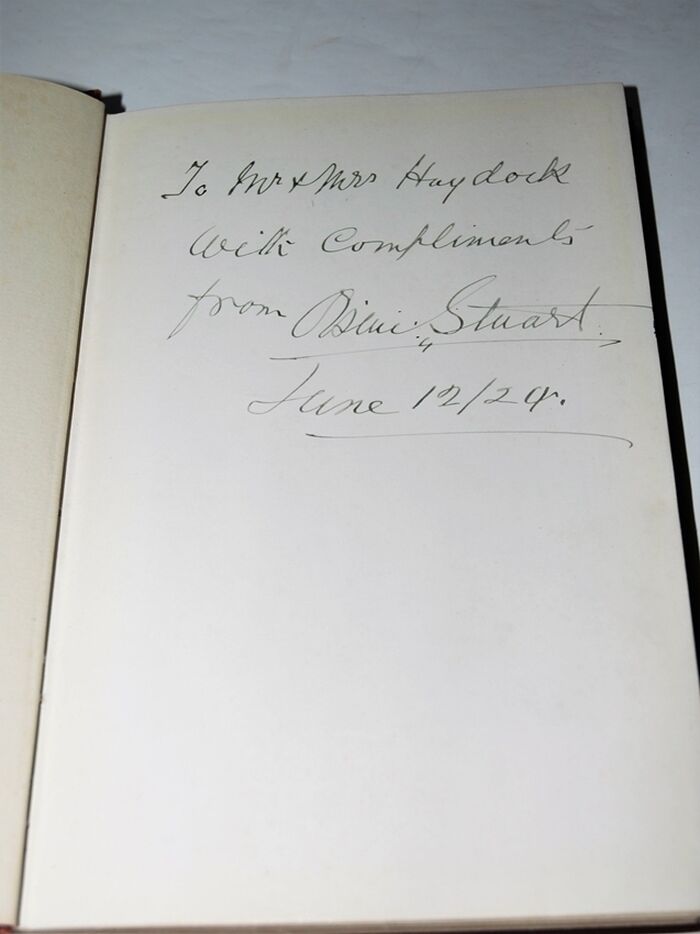 To Mr & Mrs Haydock
With Compliments
from Stuart
June 12/29.